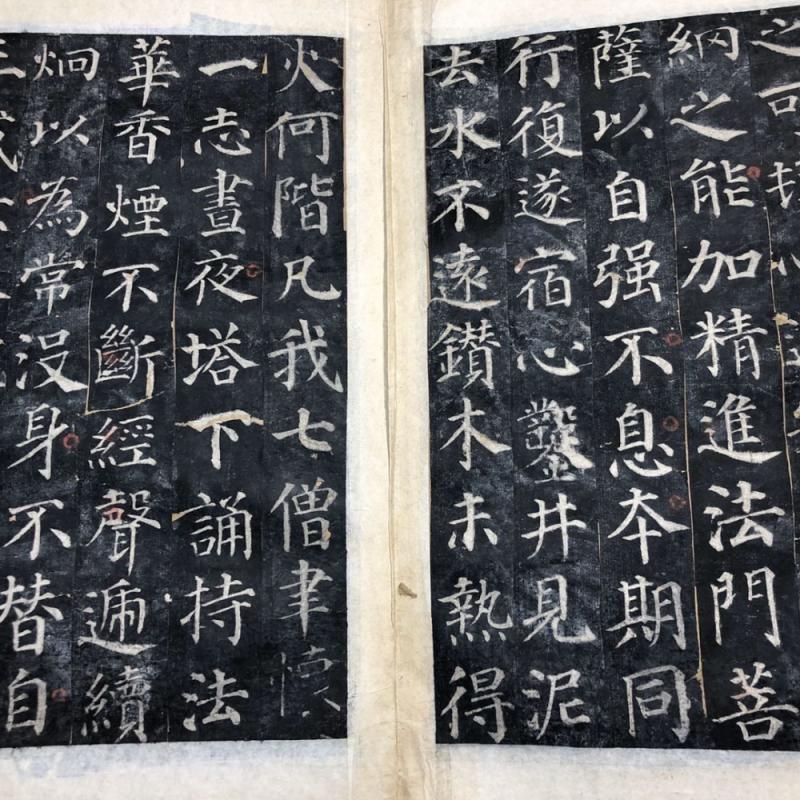 之可
納之能加精進法門菩
薩以自强不息本期同
行復遂宿心鑿井見泥
去水不遠鑽木未熱得
火何階凡我七僧聿懷
一志晝夜塔下誦持法
華香煙不斷經聲遞續
炯以為常沒身不替自